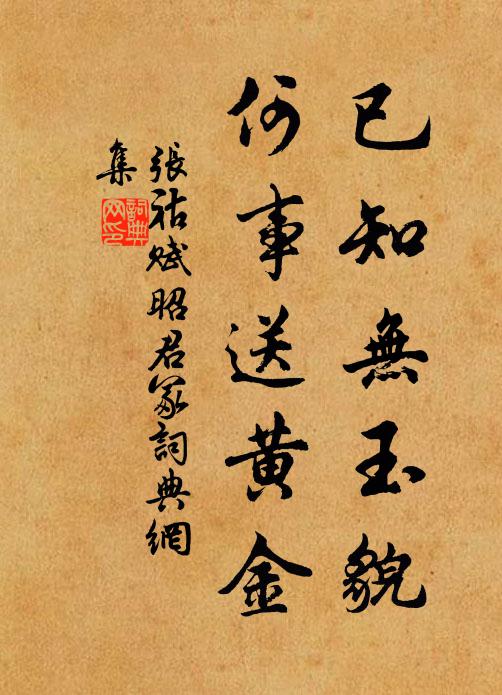 已知無玉貌
何事送黄金
張祜賦昭君冢詞典網
集
詞典
网印